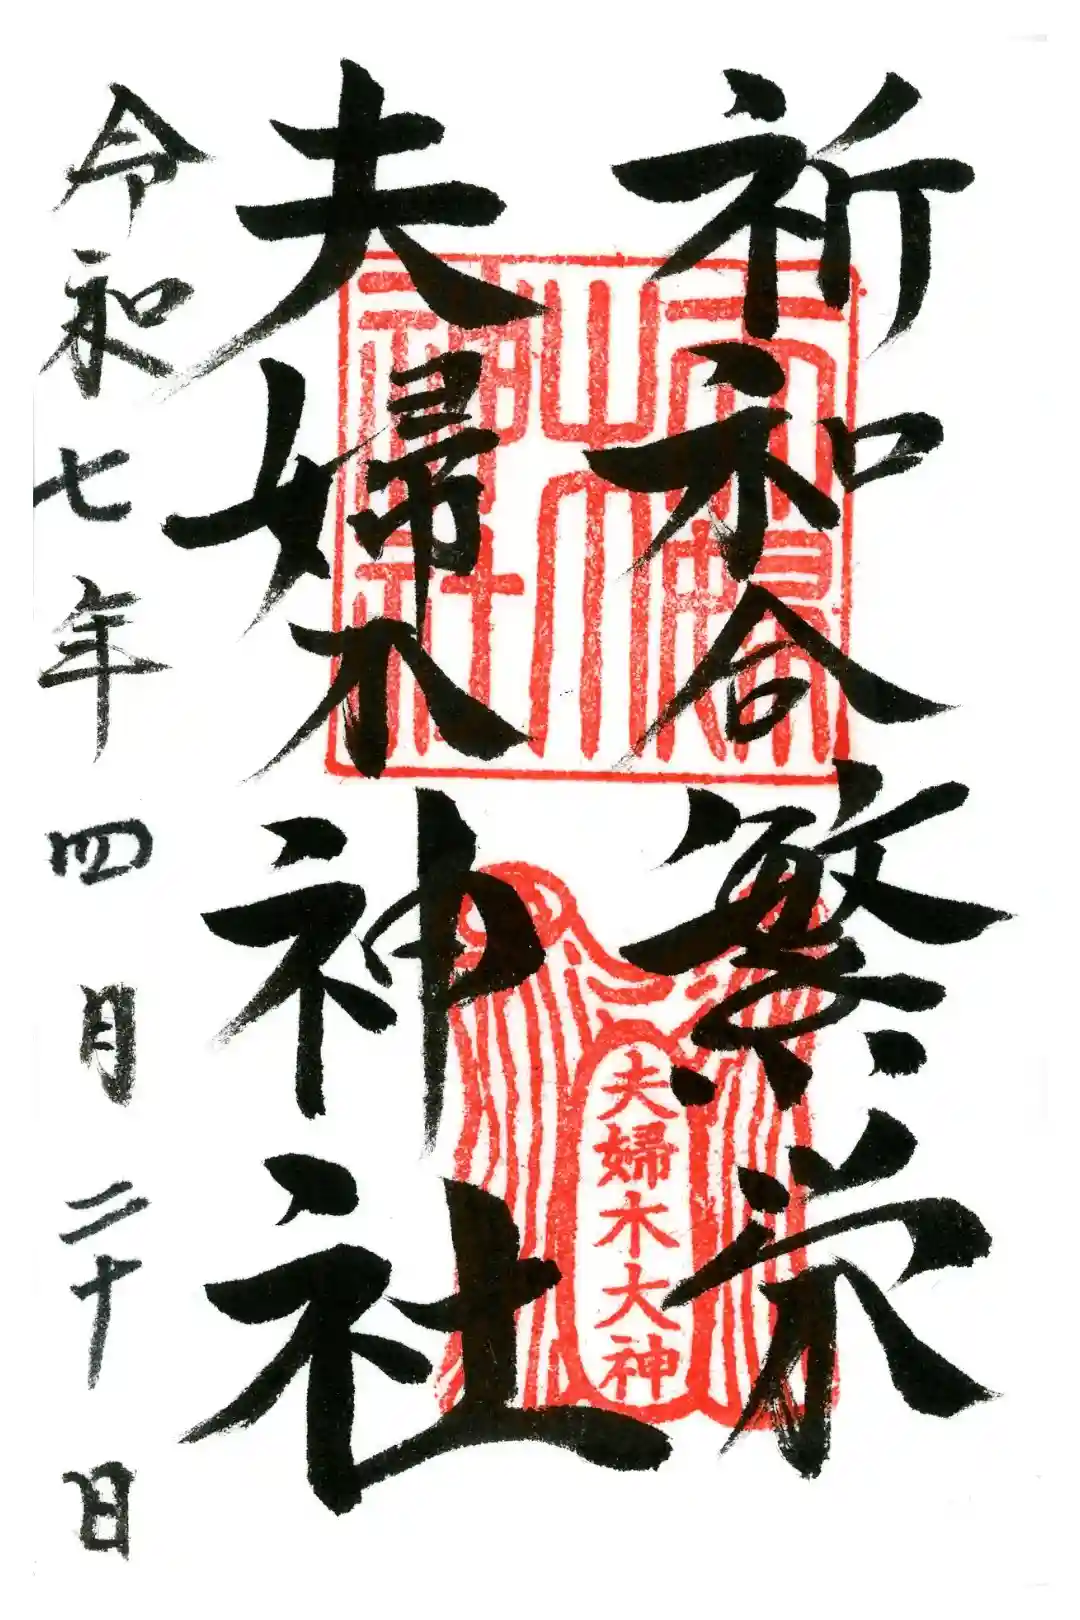 祈和合繁栄
夫婦木神社
令和七年四月二十日
夫婦
木
神社
夫婦木大神